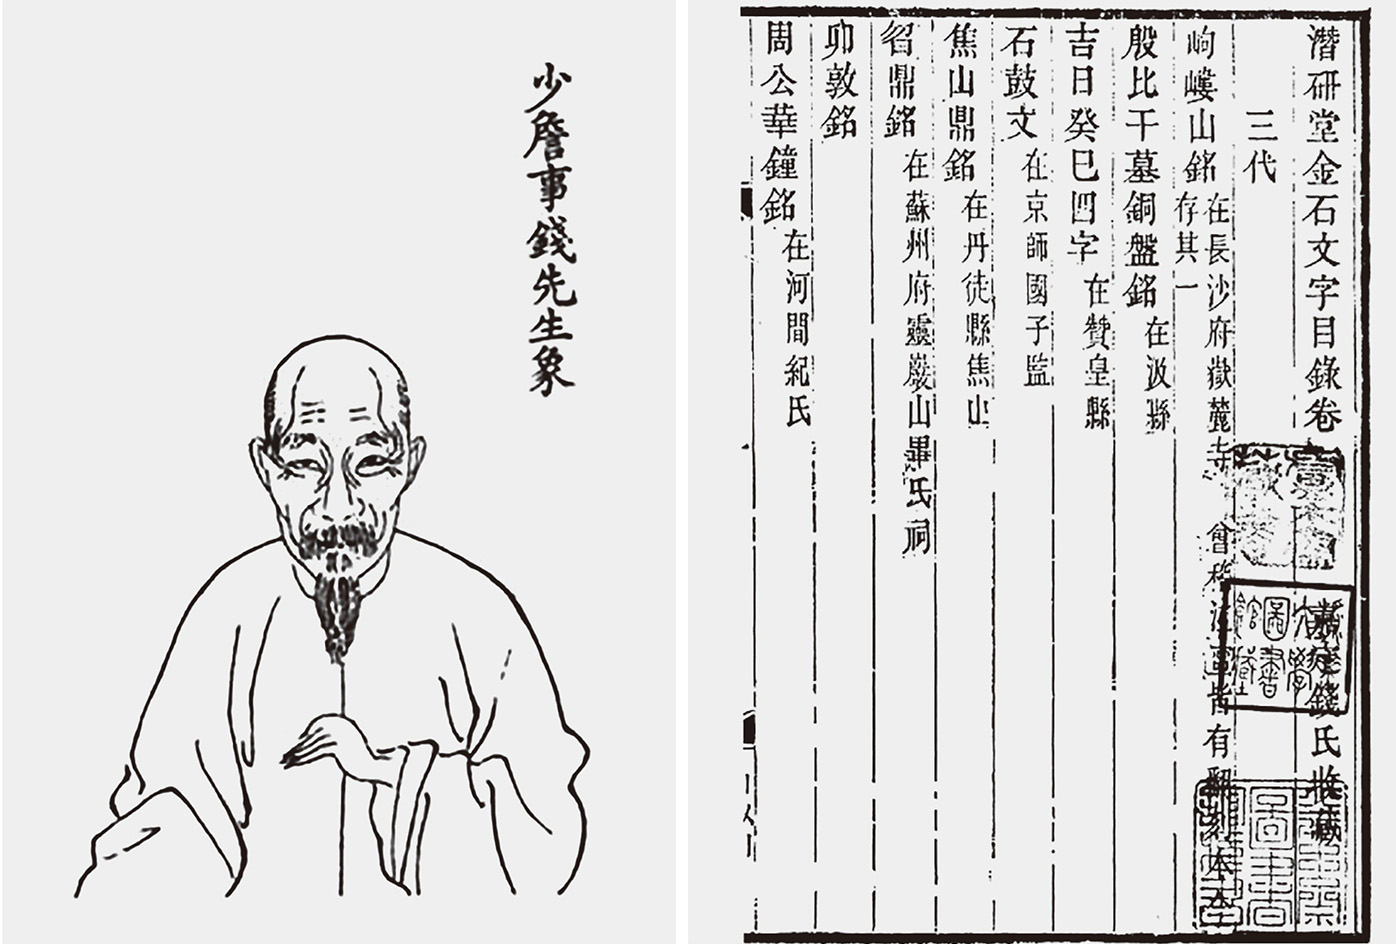 少詹事錢先生象
潛研堂金石文字目錄卷一 嘉定錢氏收藏
三代
岣嶁山銘 在長沙府嶽麓寺 會稽 皆有翻刻本今
存其一
殷比干墓銅盤銘 在汲縣
吉日癸巳四字 在贊皇縣
石鼓文 在京師國子監
焦山鼎銘 在丹徒縣焦山
曶鼎銘 在蘇州府靈巖山畢氏祠
卯敦銘
周公華鐘銘 在河間紀氏